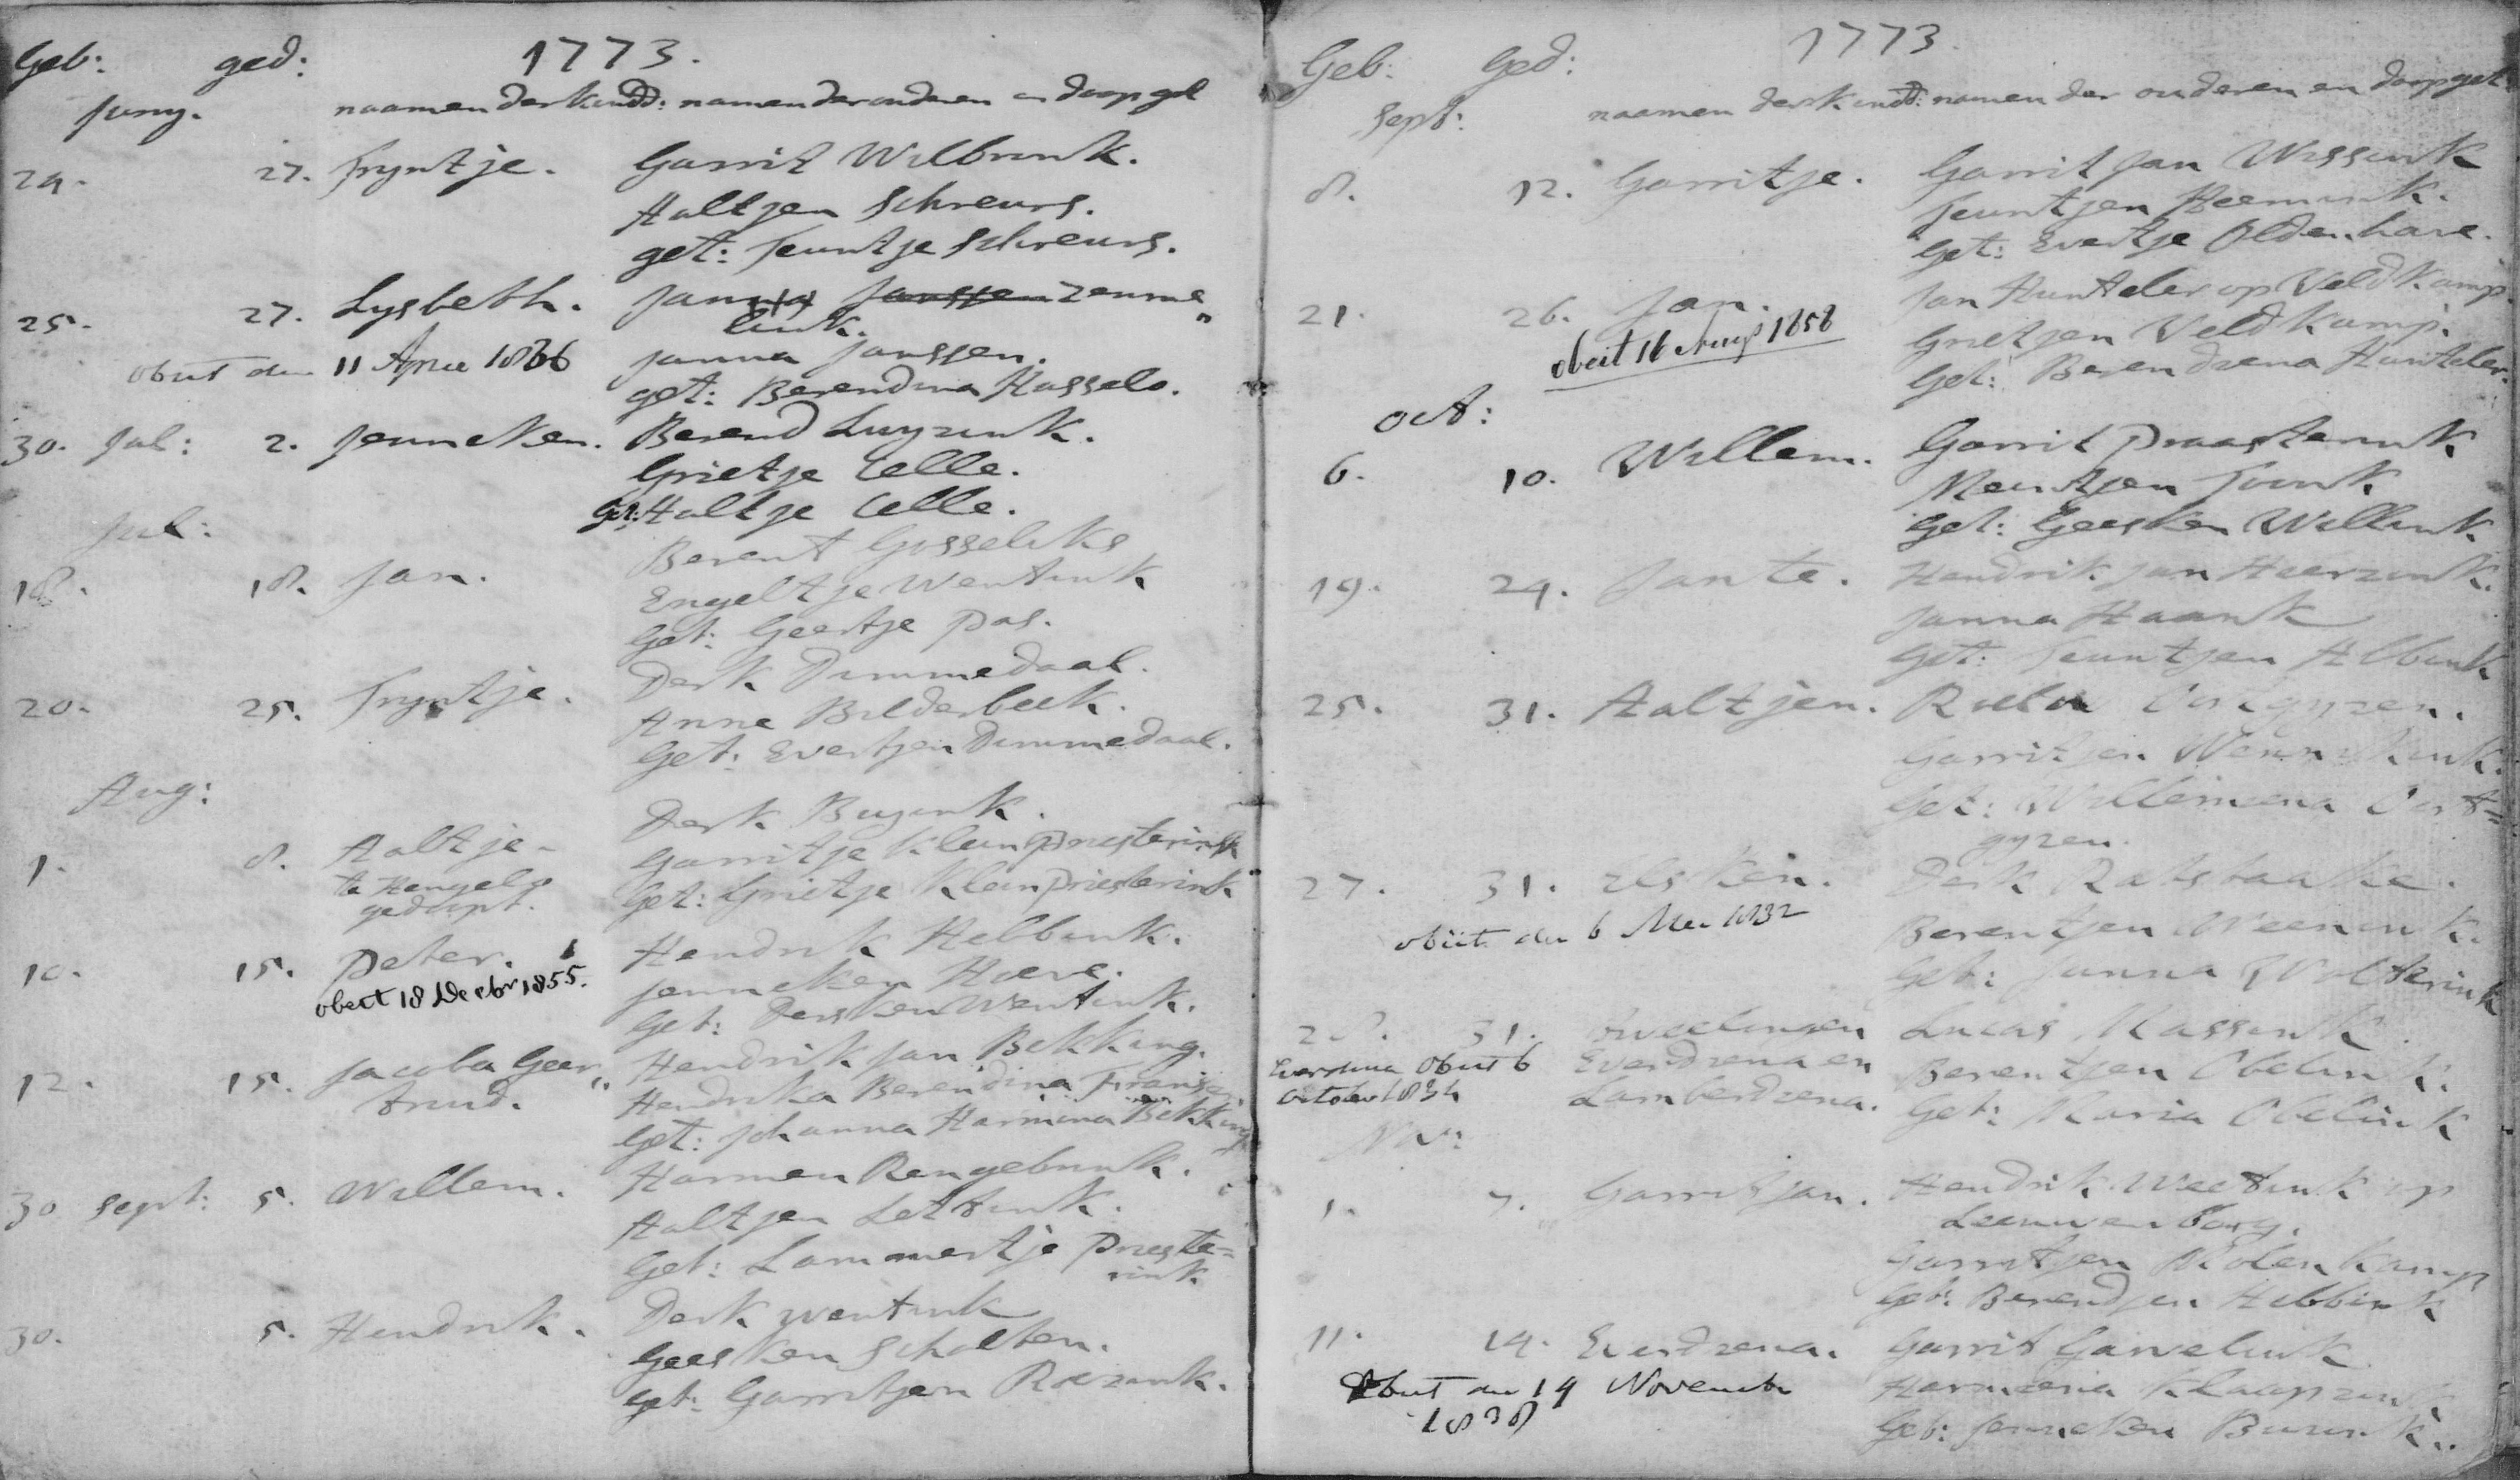 Geb: ged: 1773.
Juny. naamen der kindd: namen der ouderen en doop get
24. 27. Tryntje. Garrit Wilbrink.
Aaltjen Schreurs.
get: Teuntje Schreurs.
25. 27. Lysbeth. Jan Janssen Zenne„
link.
obiit den 11 April 1836 Janna Janssen.
get: Berendina Hasselo.
30. Jul: 2. Jenneken. Berend Luyzink.
Grietje Celle.
Get: Aaltje Celle.
Jul:
18. 18. Jan. Berent Gosseliks
Engeltje Wentink
Get: Geertje Pas.
20. 25. Tryntje. Derk Dimmedaal.
Anne Bilderbeek.
Get: Evertjen Dimmedaal.
Aug:
1. 8. Aaltje. Derk Buzink.
te Hengelo Garritje Klein Priesterink
gedoopt. Get: Grietje Klein Priesterink
10. 15. Peter. Hendrik Hebbink.
obeit 18 Decbr 1855. Jenneken Have.
Get: Dersken Wentink.
12. 15. Jacoba Geer„ Hendrik Jan Bekking.
truid. Hendrika Berendina Fransen
Get: Johanna Harmina Bekking
30 Sept: 5. Willem. Harmen Rengebrink.
Aaltjen Lettink.
Get: Lammertje Prieste=
rink
30. 5. Hendrik. Derk Wentink
Geesken Scholten.
Get: Garritjen Roezink.
Geb: Ged: 1773
Sept: naamen der kindd: namen der ouderen en doop get
8. 12. Garritje. Garrit Jan Wissink
Teuntjen Heemink.
Get: Evertje Oldenhave.
21. 26. Jan. Jan Hunteler op Veldkamp
obeit 16 Aug 1858 Grietjen Veldkamp.
Get: Berendiena Hunteler.
Oct:
6. 10. Willem. Garrit Praasterink
Meintjen Tonk
Get: Geesken Willink
19. 24. Jan te. Hendrik Jan Haerzink.
Janna Haank
Get: Teuntjen Albink
25. 31. Aaltjen. Roelof Oortgyzen.
Garritjen
Get: Willemiena Oort=
gyzen.
27. 31. Elsken. Derk
obiit den 6 Mei 1832 Berentjen Weenink.
Get: Janna Wolterink
28. 31. tweelingen Lucas Massink
Everdina Obiit 6 Everdiena en Berentjen Obelink.
October 1834 Lamberdiena. Get: Maria Obelink
Nov:
1. 7. Garrit Jan. Hendrik Weetink op
Leeuwenborg.
Garritjen Molenkamp
Get: Berendjen Hebbink
11. 14. Everdiena. Garrit Garvelink
Obiit den 14 November Harmiena Klaapzink
1838 Get: Jenneken Buunk.